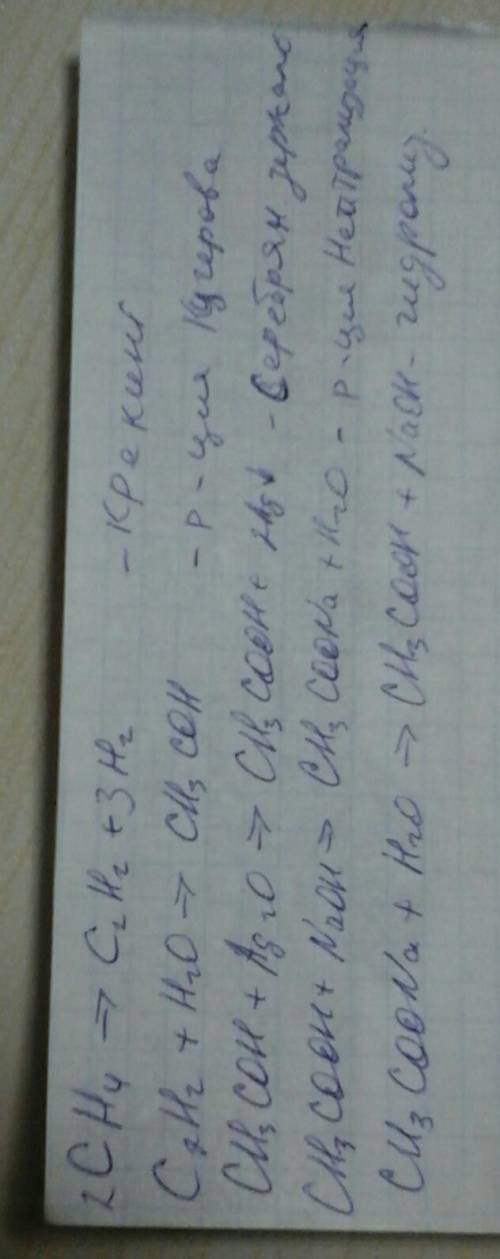 2CH₄ => C₂H₂ + 3H₂ - Крекинг
C₂H₂ + H₂O => CH₃COH - Р-ция Кучерова
CH₃COH + Ag₂O => CH₃COOH + 2Ag↓ - Серебрян зеркало
CH₃COOH + NaOH => CH₃COONa + H₂O - Р-ция Нейтрализация
CH₃COONa + H₂O => CH₃COOH + NaOH - гидролиз.